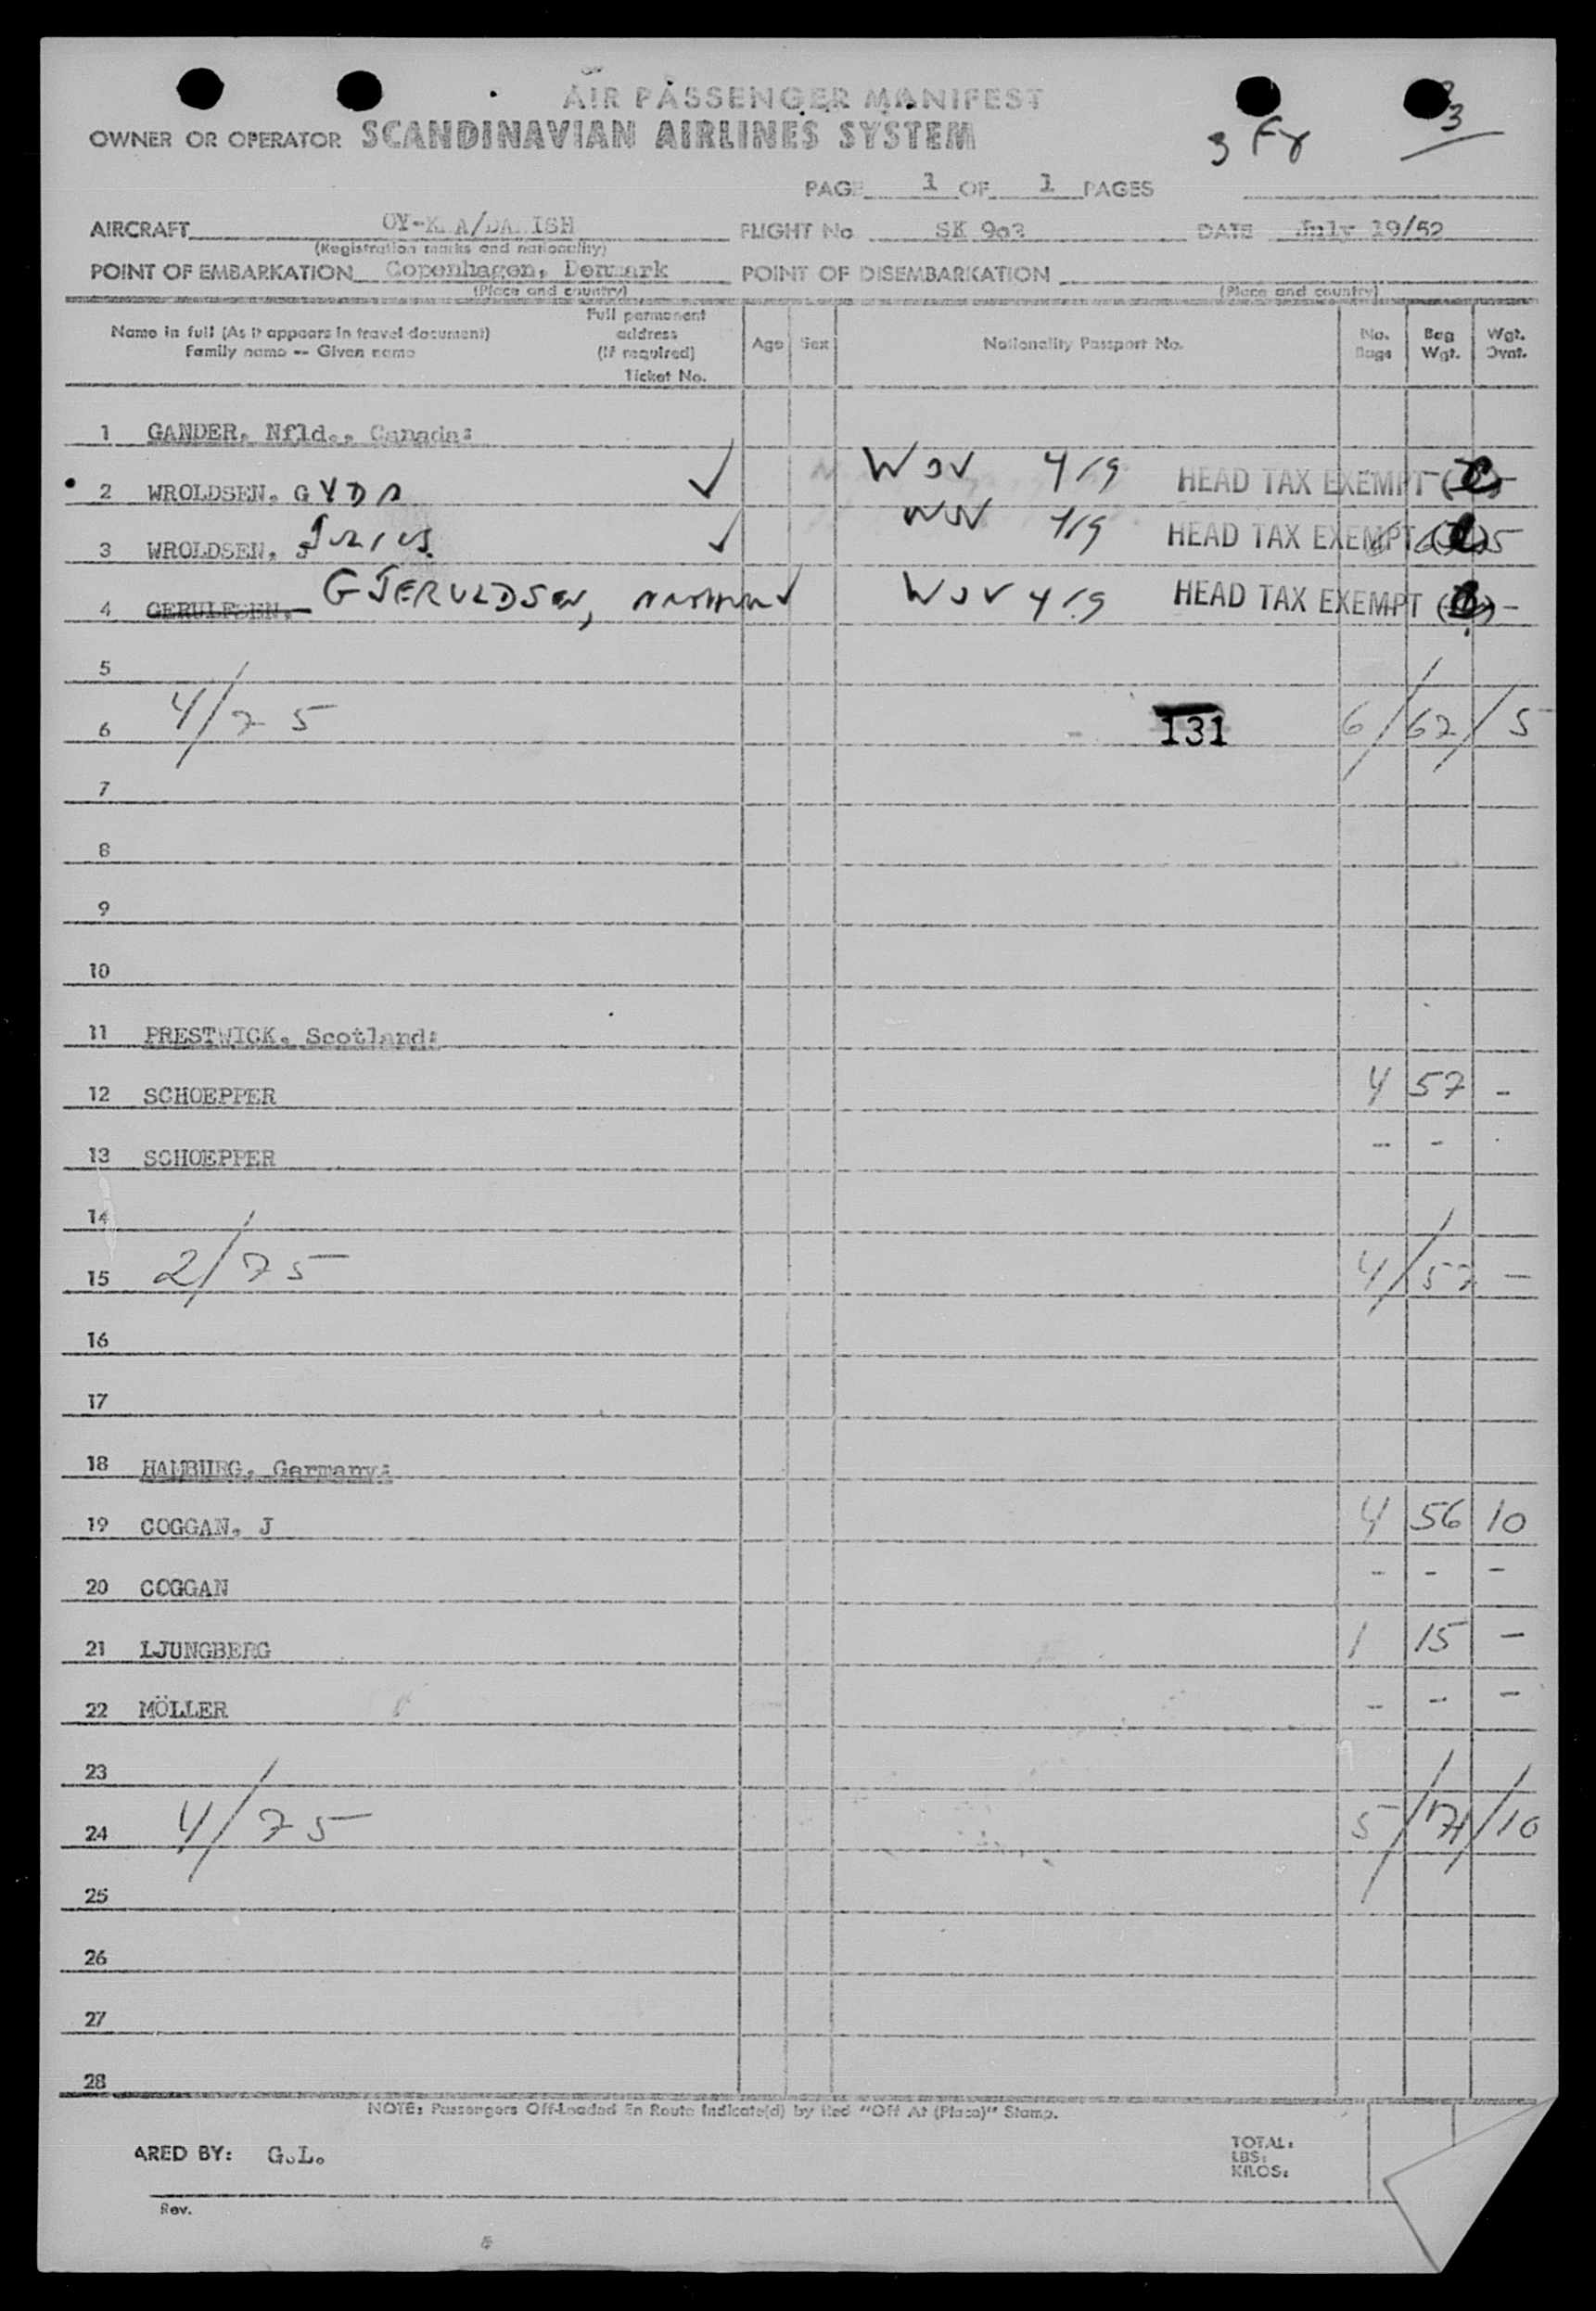 AIR PASSENGER MANIFEST
OWNER OR OPERATOR SCANDINAVIAN AIRLINES SYSTEM
3
3
PAGE 1 OF 1 PAGES
AIRCRAFT FLIGHT No SK DATE July 19/52
(Registration marks and nationality)
POINT OF EMBARKATION Copenhagen, Denmark POINT OF DISEMBARKATION
(Place and country) (Place and country)
Name in full (As it appears in travel document) Family name -- Given name Full permanent address (If required) Ticket No. Age Sex Nationality Passport No. No. Bags Bag Wgt. Wgt. Ovnt.
1 GANDER, Nfld., Canada:
2 WROLDSEN, GYDA ✓ HEAD TAX EXEMPT -
3 WROLDSEN, J ✓ HEAD TAX EXEMPT 5
4 GERULFSEN. GJERULDSEN, ✓ HEAD TAX EXEMPT -
5
6 4/75 131 6/62/5
7
8
9
10
11 PRESTWICK, Scotland:
12 SCHOEPPER 4 57 -
13 SCHOEPPER - -
14
15 2/75 4/57 -
16
17
18 HAMBURG, Germany:
19 COGGAN, J 4 56 10
20 COGGAN - - -
21 LJUNGBERG 1 15 -
22 MÖLLER - - -
23
24 4/75 5/71/10
25
26
27
28
NOTE: Passengers Off-Loaded En Route Indicate(d) by Red "Off At (Place)" Stamp.
ARED BY: G.L. TOTAL:
LBS:
KILOS:
Rev.